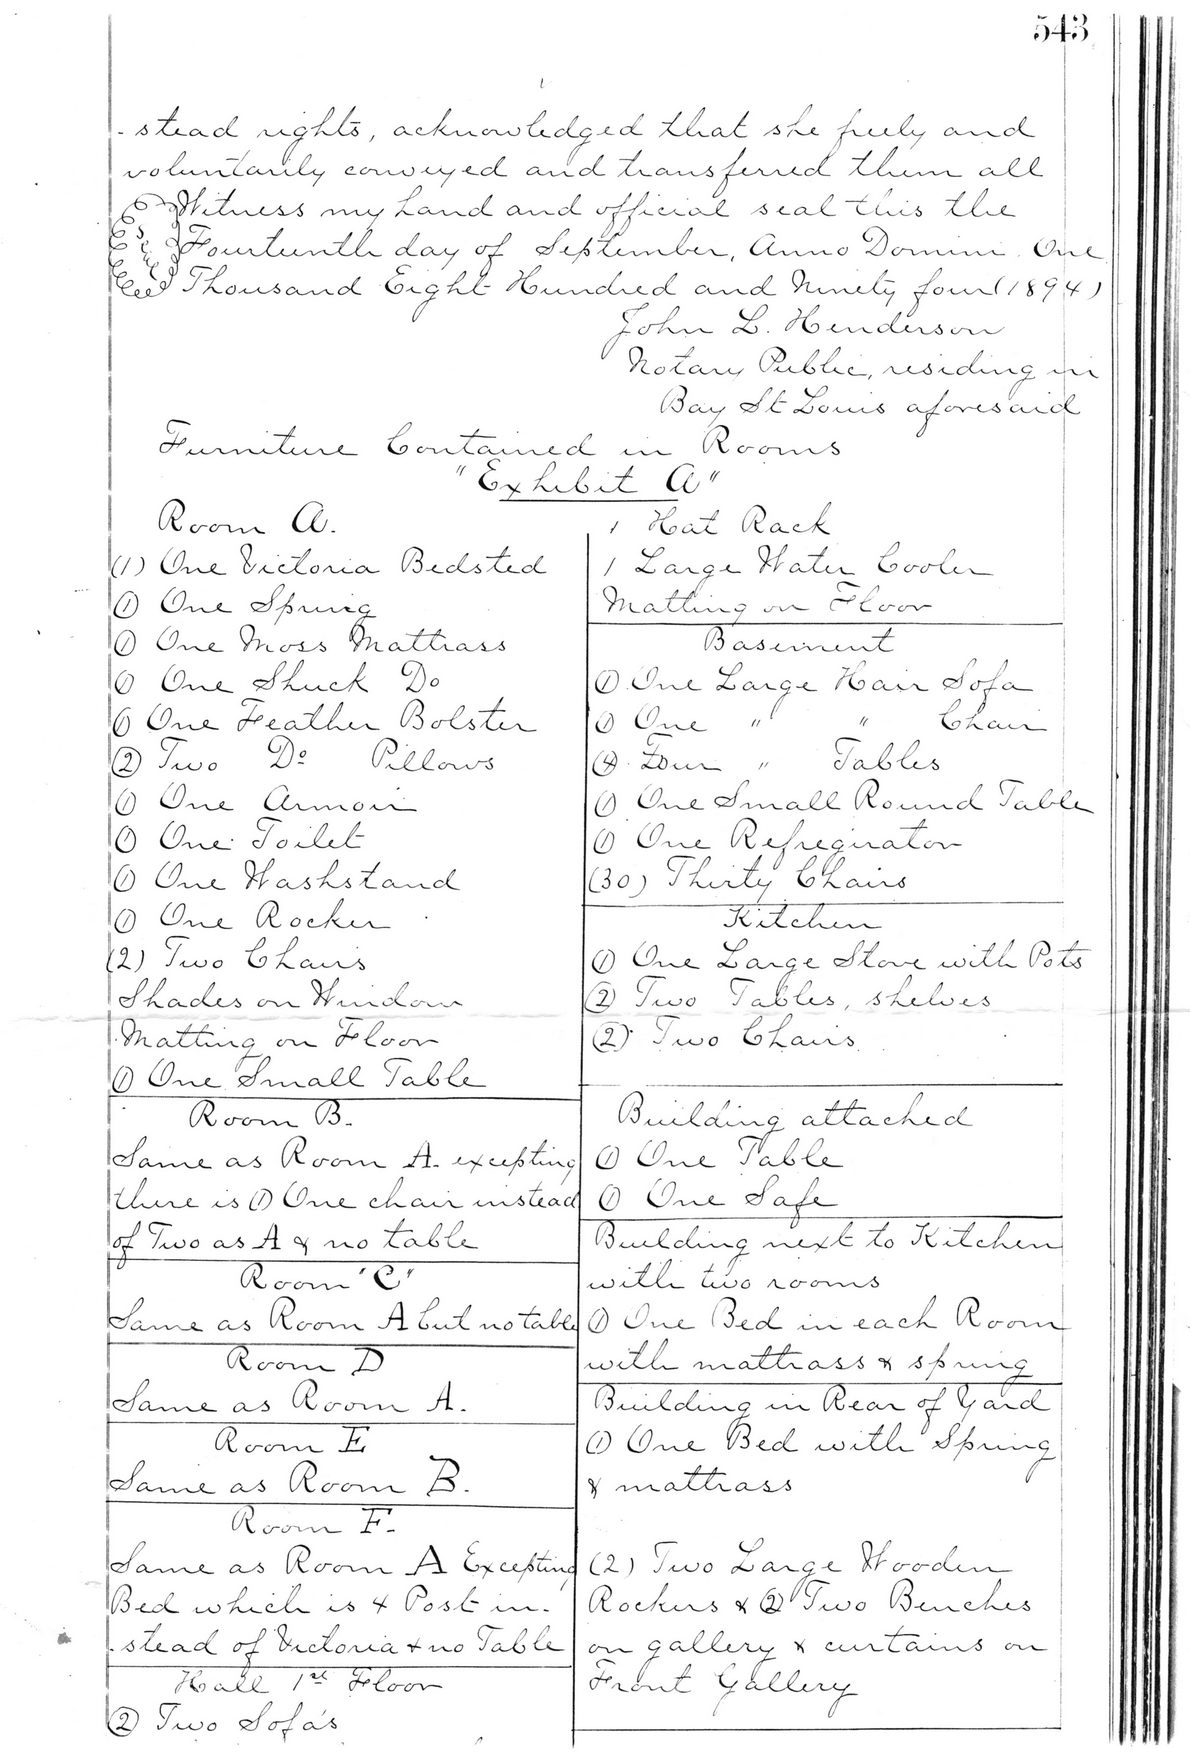 543
- stead rights, acknowledged that she freely and
voluntarily conveyed and transferred them all
Witness my hand and official seal this the
Seal
Fourteenth day of September, Anno Domini One
Thousand Eight Hundred and Ninety four (1894)
John L. Henderson
Notary Public, residing in
Bay St Louis aforesaid
Furniture Contained in Rooms
"Exhibit A"
Room A.
(1) One Victoria Bedsted
(1) One Spring
(1) One Moss Mattrass
(1) One Shuck Do
(1) One Feather Bolster
(2) Two Do Pillows
(1) One Armoir
(1) One Toilet
(1) One Washstand
(1) One Rocker
(2) Two Chairs
Shades on Window
Matting on Floor
(1) One Small Table
Room B.
Same as Room A. excepting
there is (1) One chair instead
of Two as A & no table
Room "C"
Same as Room A but no table
Room D
Same as Room A.
Room E
Same as Room B.
Room F.
Same as Room A Excepting
Bed which is 4 Post in-
-stead of Victoria & no Table
Hall 1st Floor
(2) Two Sofa's
1 Hat Rack
1 Large Water Cooler
Matting on Floor
Basement
(1) One Large Hair Sofa
(1) One " " Chair
(4) Four " Tables
(1) One Small Round Table
(1) One Refregirator
(30) Thirty Chairs
Kitchen
(1) One Large Stove with Pots
(2) Two Tables, shelves
(2) Two Chairs
Building attached
(1) One Table
(1) One Safe
Building next to Kitchen
with two rooms
(1) One Bed in each Room
with mattrass & spring
Building in Rear of Yard
(1) One Bed with Spring
& mattrass
(2) Two Large Wooden
Rockers & (2) Two Benches
on gallery & curtains on
Front Gallery